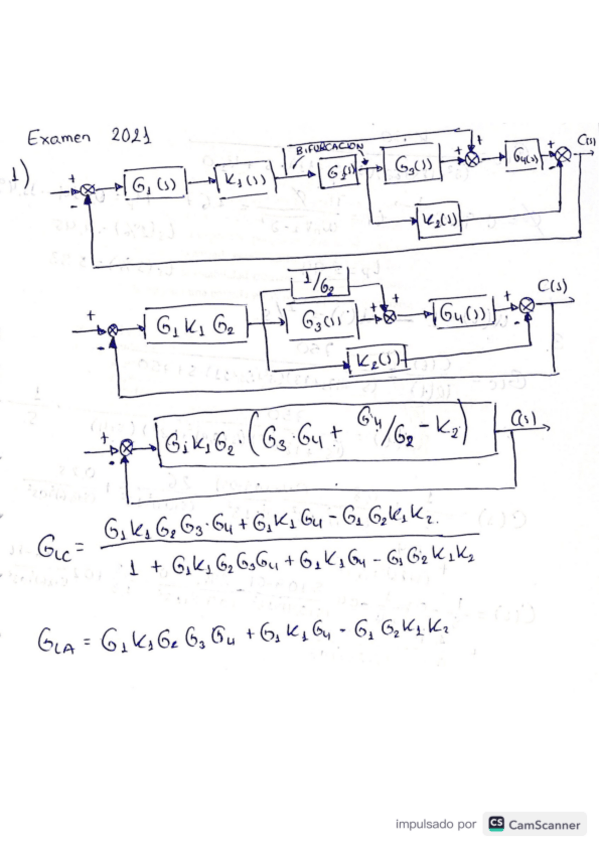 Examen 2021
1)
+ - G₁(s) K₁(s) BIFURCACION G₂(s) G₃(s) + + G₄(s) + - C(s)
K₂(s)
1/G₂
+ - G₁ K₁ G₂ G₃(s) + + G₄(s) + - C(s)
K₂(s)
+ - G₁K₁G₂·(G₃·G₄ + G₄/G₂ - K₂) C(s)
G_LC = G₁K₁G₂G₃·G₄ + G₁K₁G₄ - G₁G₂K₁K₂.
1 + G₁K₁G₂G₃G₄ + G₁K₁G₄ - G₁G₂K₁K₂
G_LA = G₁K₁G₂G₃G₄ + G₁K₁G₄ - G₁G₂K₁K₂
impulsado por CS CamScanner